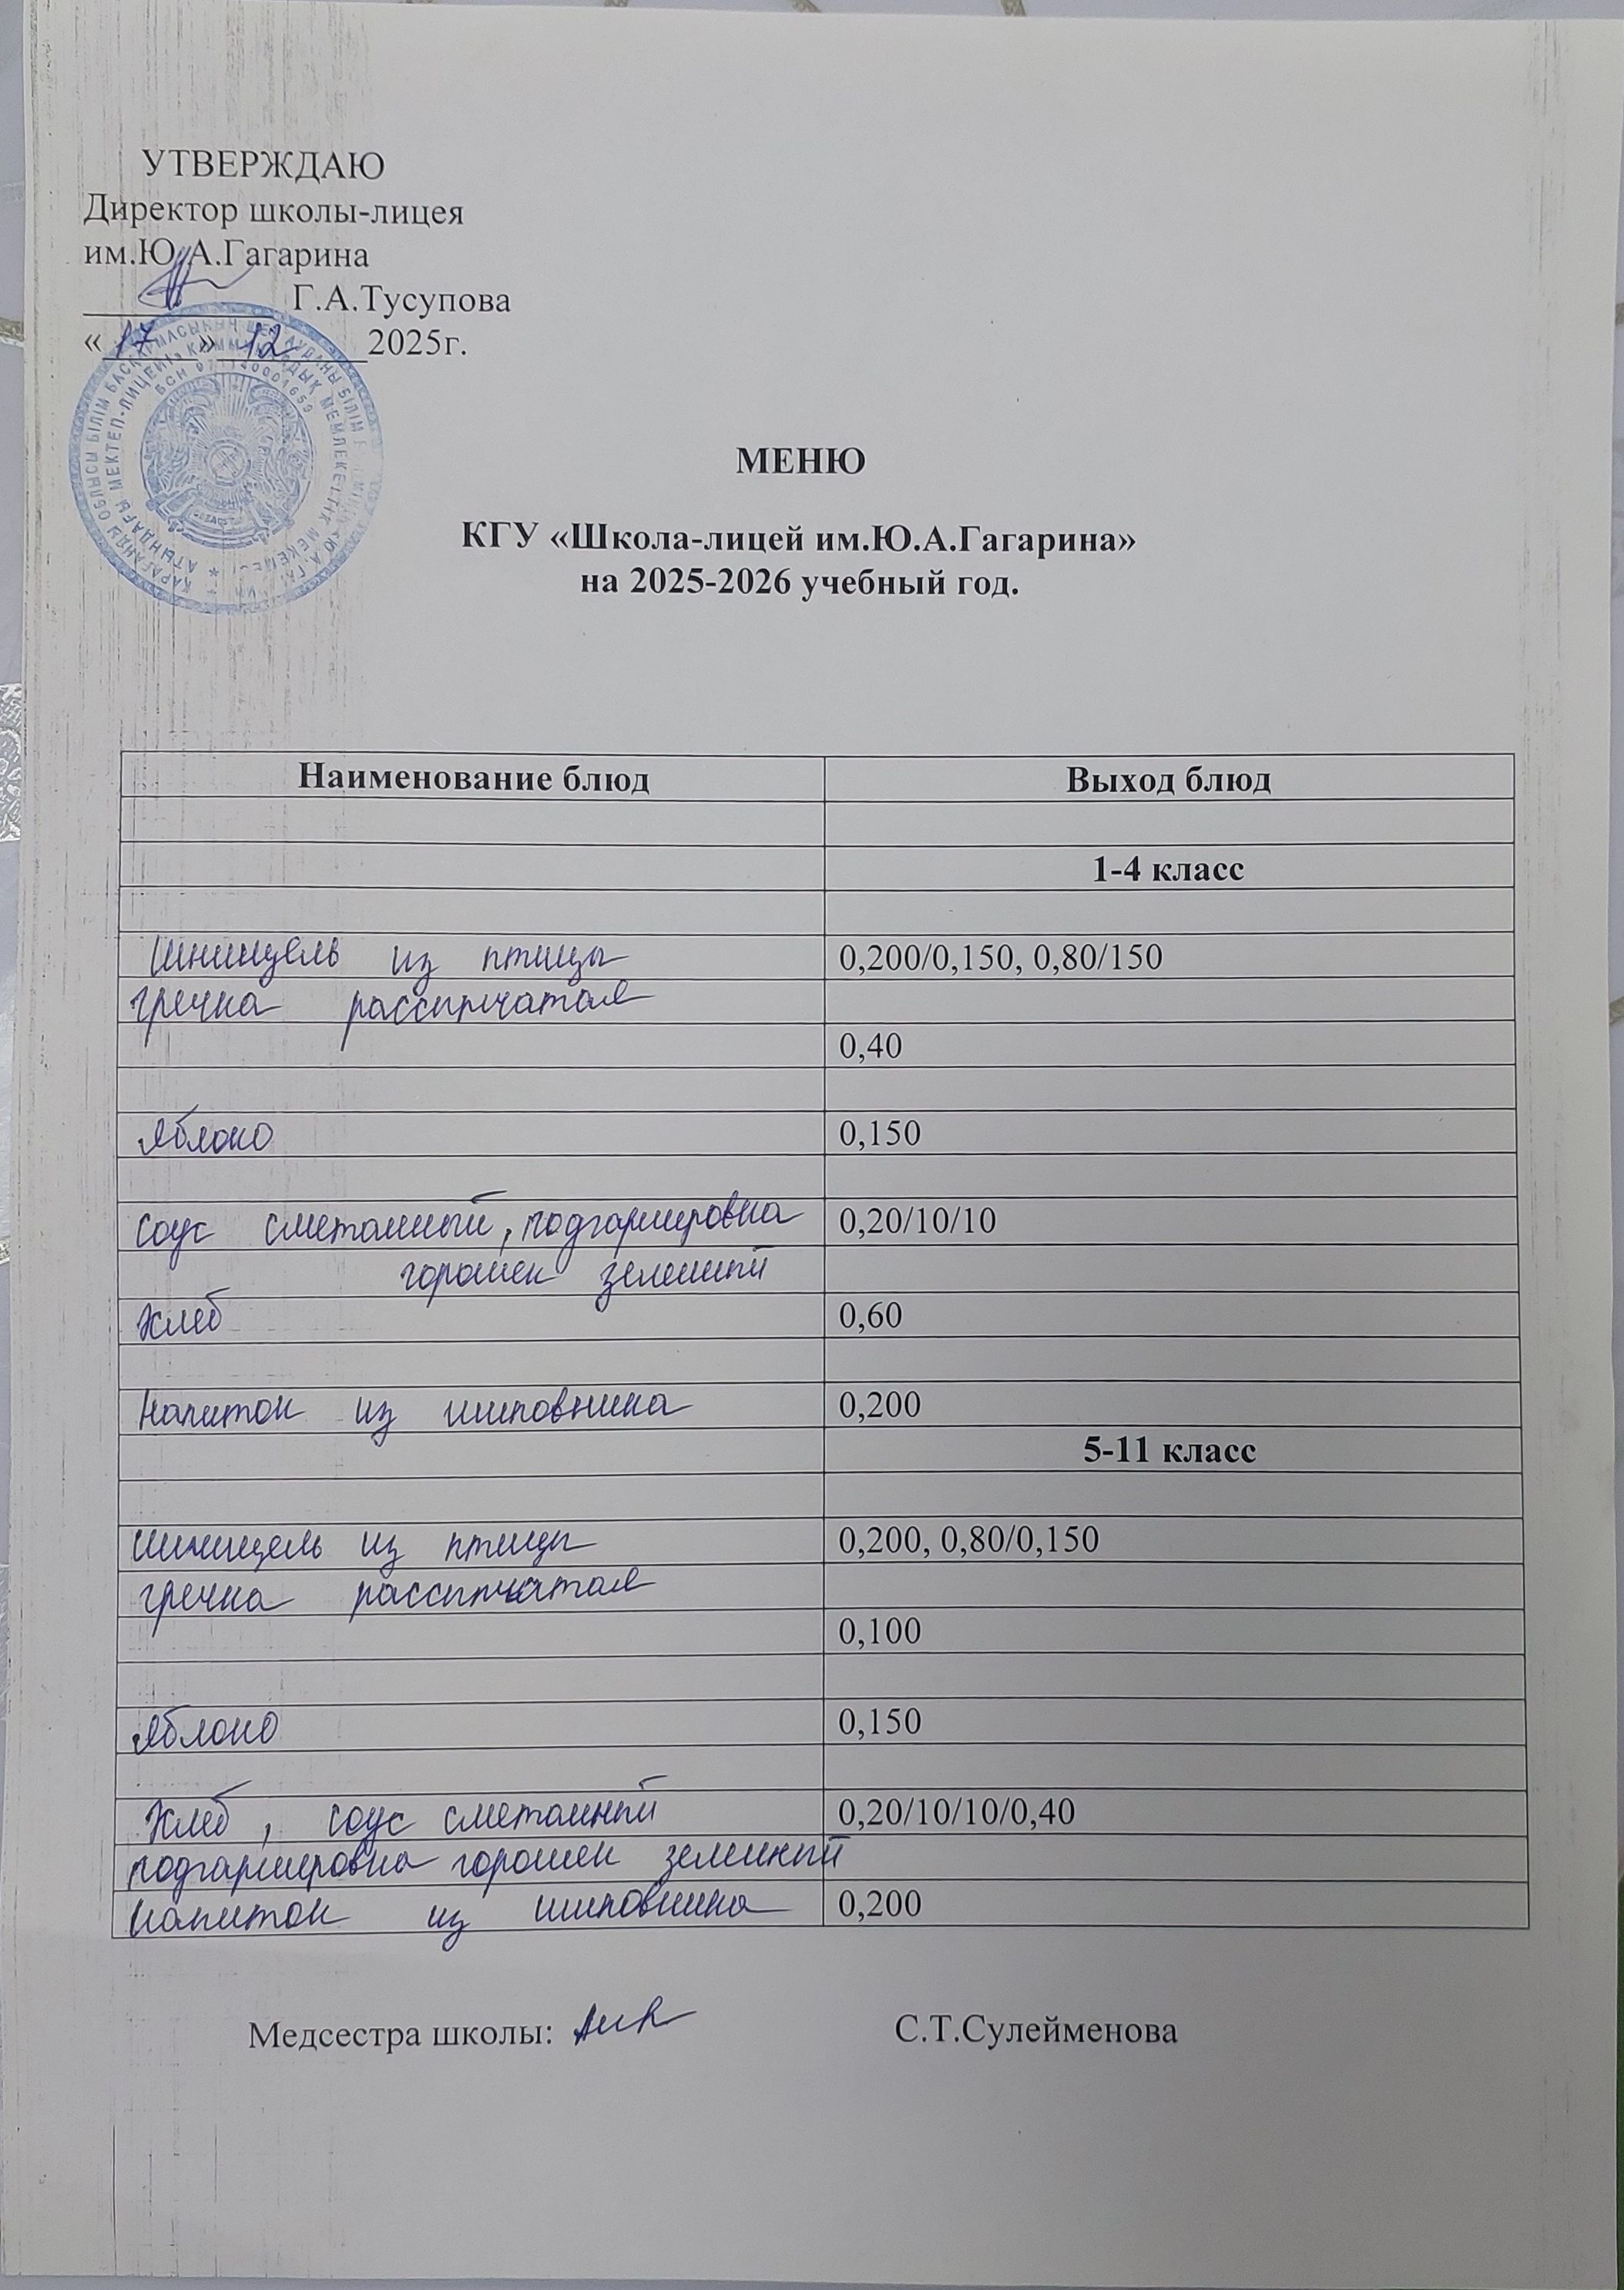 УТВЕРЖДАЮ
Директор школы-лицея
им.Ю.А.Гагарина
Г.А.Тусупова
«17» 12 2025г.
БСН 071140001659
МЕНЮ
КГУ «Школа-лицей им.Ю.А.Гагарина»
на 2025-2026 учебный год.
Наименование блюд Выход блюд
1-4 класс
Шницель из птицы 0,200/0,150, 0,80/150
гречка рассыпчатая
0,40
Яблоко 0,150
соус сметанный, подгарнировка 0,20/10/10
горошек зеленый
Хлеб 0,60
Напиток из шиповника 0,200
5-11 класс
Шницель из птицы 0,200, 0,80/0,150
гречка рассыпчатая
0,100
Яблоко 0,150
Хлеб, соус сметанный 0,20/10/10/0,40
подгарнировка горошек зеленый
напиток из шиповника 0,200
Медсестра школы: С.Т.Сулейменова